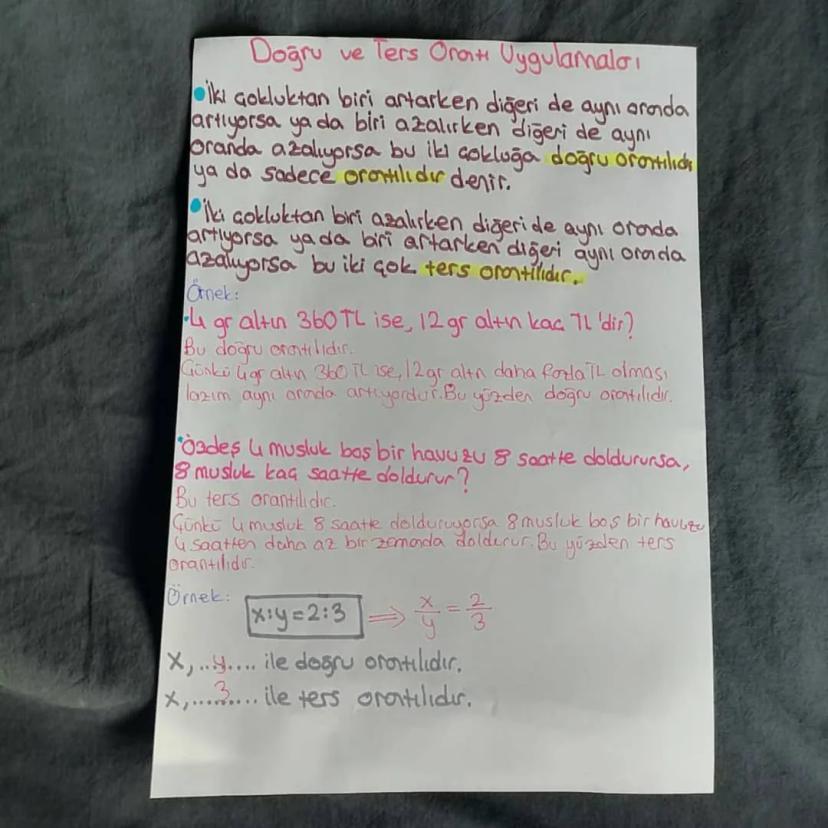 Doğru ve Ters Orantı Uygulamaları
İki çokluktan biri artarken diğeri de aynı oranda
artıyorsa ya da biri azalırken diğeri de aynı
oranda azalıyorsa bu iki çokluğa doğru orantılıdır
ya da sadece orantılıdır denir.
İki çokluktan biri azalırken diğeri de aynı oranda
artıyorsa ya da biri artarken diğeri aynı oranda
azalıyorsa bu iki çok. ters orantılıdır.
Örnek:
4 gr altın 360 TL ise, 12 gr altın kaç TL'dir?
Bu doğru orantılıdır.
Çünkü 4 gr altın 360 TL ise, 12 gr altın daha fazla TL olması
lazım aynı oranda artıyordur. Bu yüzden doğru orantılıdır.
Özdeş 4 musluk boş bir havuzu 8 saatte doldurursa,
8 musluk kaç saatte doldurur?
Bu ters orantılıdır.
Çünkü 4 musluk 8 saatte dolduruyorsa 8 musluk boş bir havuzu
4 saatten daha az bir zamanda doldurur. Bu yüzden ters
orantılıdır.
Örnek:
x:y=2:3 ⟹ x/y = 2/3
x, ..y.... ile doğru orantılıdır.
x, ....3..... ile ters orantılıdır.